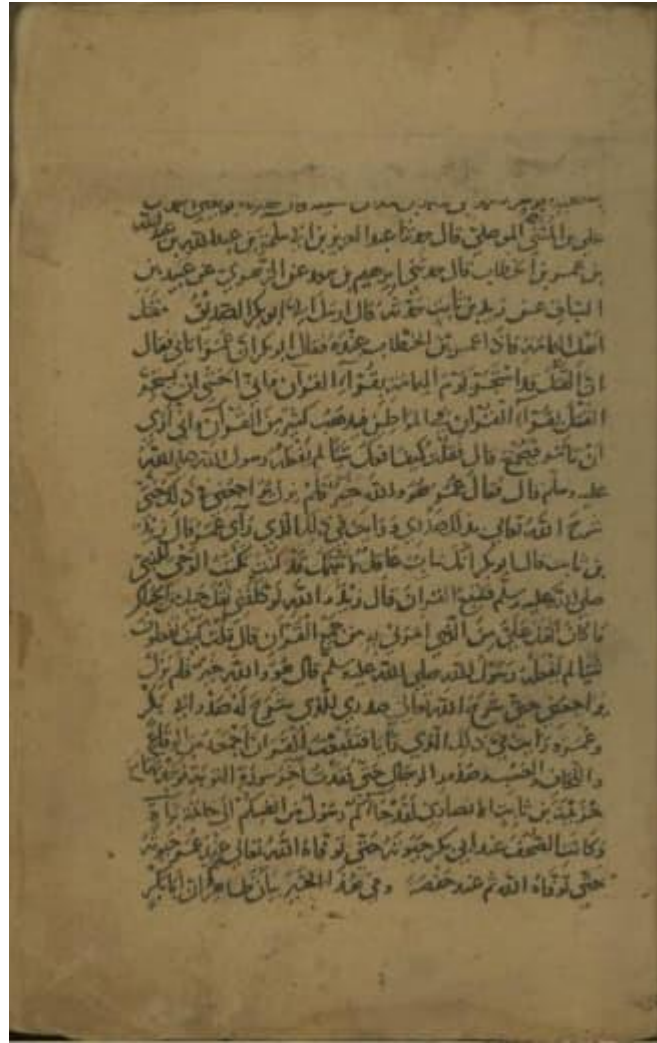 علي بن المثنى الموصلي قال حدثنا عبد العزيز بن ابي سلمة بن عبد الله بن عبد الله
بن عمر بن الخطاب قال حدثني ابرهيم بن سعد عن الزهري عن عبيد بن
السباق عن زيد بن ثابت حدثه قال ارسل الي ابو بكر الصديق مقتل
اهل اليمامة فاذا عمر بن الخطاب عنده فقال ابو بكر ان عمر اتاني فقال
ان القتل قد استحر يوم اليمامة بقراء القرآن واني اخشى ان يستحر
القتل بقراء القرآن في المواطن فيذهب كثير من القرآن واني ارى
ان تأمر فيجمع قال فقلت وكيف افعل شيئا لم يفعله رسول الله صلى الله
عليه وسلم قال فقال عمر هو والله خير فلم يزل يراجعني في ذلك حتى
شرح الله تعالى بذلك صدري ورايت في ذلك الذي رآى عمر قال زيد
بن ثابت قال ابو بكر انك شاب عاقل لا نتهمك قد كنت تكتب الوحي للنبي
صلى الله عليه وسلم فتتبع القرآن قال زيد والله لو كلفني نقل جبل من الجبال
ما كان اثقل علي من الذي امرني به من جمع القرآن قال قلت كيف تفعلون
شيئا لم يفعله رسول الله صلى الله عليه وسلم قال هو والله خير فلم يزل
يراجعني حتى شرح الله تعالى صدري للذي شرح له صدر ابي بكر
وعمر ورايت في ذلك الذي رأيا فتتبعت القرآن اجمعه من الرقاع
واللخاف والعسب وصدور الرجال حتى فقدت آخر سورة التوبة
خزيمة بن ثابت الانصاري لقد جاءكم رسول من انفسكم الى خاتمة براءة
وكانت الصحف عند ابي بكر حيوته حتى توفاه الله تعالى ثم عند عمر حيوته
حتى توفاه الله ثم عند حفصة وفي هذا الخبر بيان ظاهر ان ابا بكر